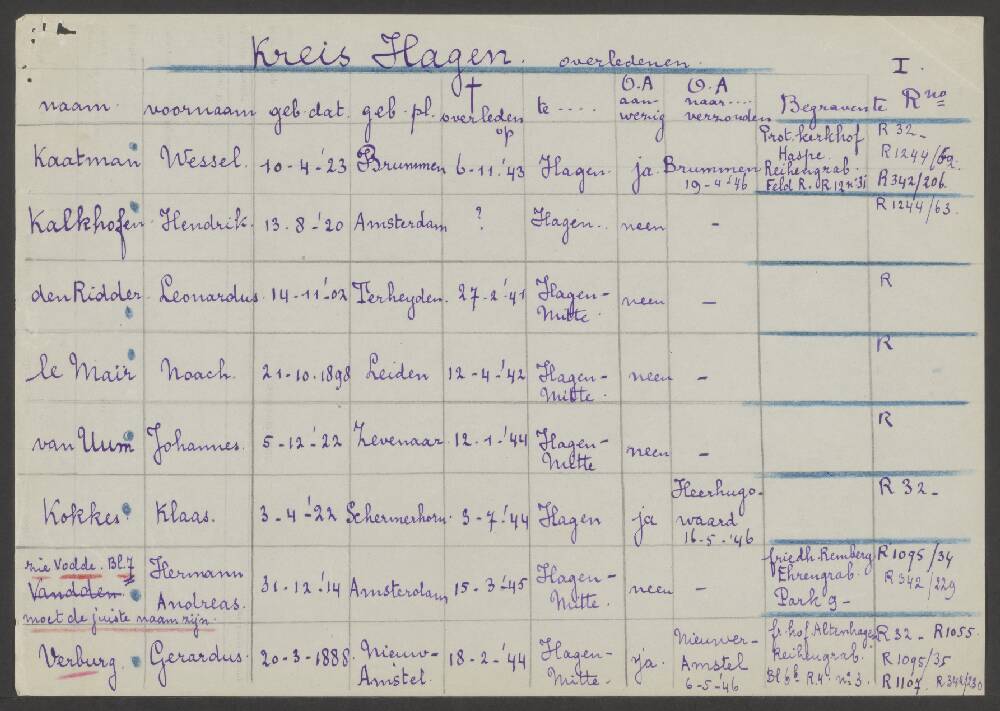 Kreis Hagen. overledenen. I.
naam. voornaam geb. dat. geb. pl. † overleden op te ..... O.A aanwezig O.A naar.... verzonden Begraven te R no
Kaatman Wessel. 10-4-'23 Brummen 6-11-'43 Hagen. ja. Brummen 19-4-'46 Prot. kerkhof Haspe. Reihengrab. Feld R. R 12 no 31 R 32- R1244/59. R342/206.
Kalkhofen Hendrik. 13-8-'20 Amsterdam ? Hagen. neen - R 1244/63.
den Ridder. Leonardus. 14-11-'02 Terheyden. 27-2-'41 Hagen-Mitte. neen - R
le Mair Noach. 21-10-1898 Leiden 12-4-'42 Hagen-Mitte. neen - R
van Uum Johannes. 5-12-'22 Zevenaar 12-1-'44 Hagen-Mitte neen - R
Kokkes. Klaas. 3-4-'22 Schermerhorn. 3-7-'44 Hagen ja Heerhugowaard 16-5-'46 R 32-
zie Vodde. Bl.7 Vandden. moet de juiste naam zijn. Hermann Andreas. 31-12-'14 Amsterdam 15-3-'45 Hagen-Mitte. neen - friedh. Remberg Ehrengrab. Park 9- R 1095/34 R342/229
Verburg. Gerardus. 20-3-1888 Nieuw-Amstel. 18-2-'44 Hagen-Mitte. ja. Nieuwer-Amstel 6-5-'46 fr. hof Altenhagen Reihengrab. R.4. no 3. R 32- R1055. R1095/35 R1107. R342/230